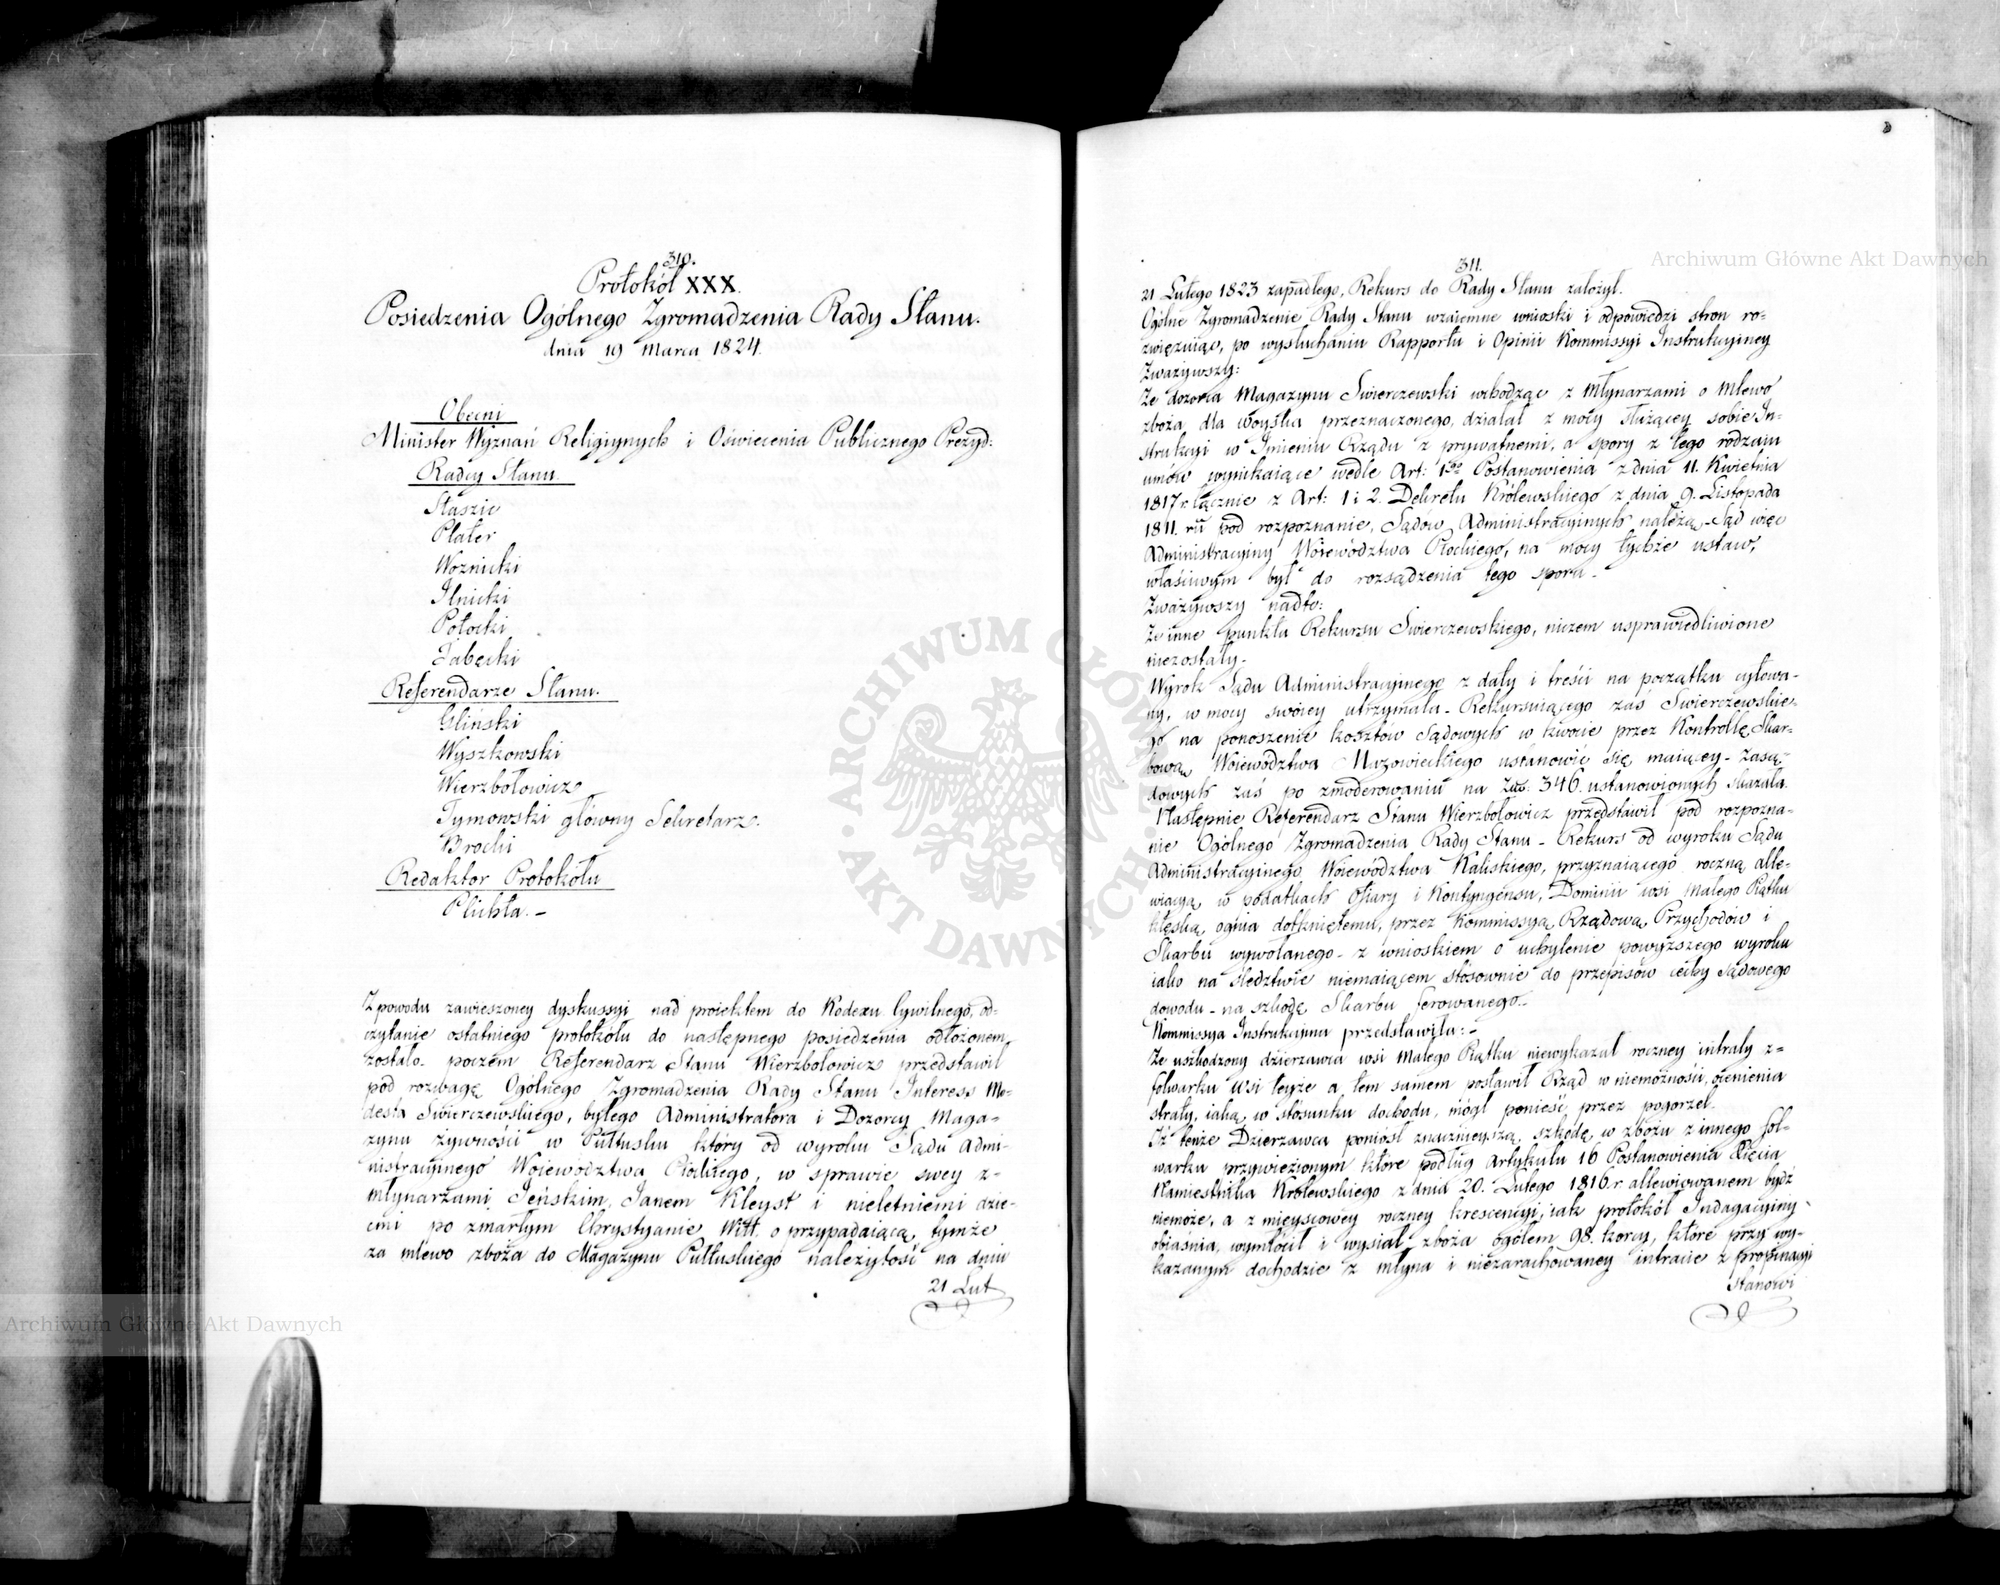 310.
Protokół XXX.
Posiedzenia Ogólnego Zgromadzenia Rady Stanu.
dnia 19 Marca 1824.
Obecni
Minister Wyznań Religiynych i Oświecenia Publicznego Prezyd:
Radcy Stanu
Staszic
Plater
Woznicki
Ilnicki
Potocki
Zabęcki
Referendarze Stanu.
Gliński
Wyszkowski
Wierzbołowicz
Tymowski główny Sekretarz.
Brocki
Redaktor Protokółu
Plichta. -
Z powodu zawieszoney dyskussyi nad proiektem do Kodexu Cywilnego, od-
czytanie ostatniego protokółu do następnego posiedzenia odłożonem
zostało. poczem Referendarz Stanu Wierzbołowicz przedstawił
pod rozwagę Ogólnego Zgromadzenia Rady Stanu Interess Mo-
desta Swierczewskiego, byłego Administratora i Dozorcy Maga-
zynu żywności w Pułtusku który od wyroku Sądu Admi-
nistracyinego Woiewództwa Płockiego, w sprawie swey z-
młynarzami Jeńskim, Janem Kleyst i nieletniemi dzie-
ćmi po zmarłym Chrystyanie Witt. o przypadaiącą tymże
za mlewo zboża do Magazynu Pułtuskiego należytość na dniu
21 Lut
311.
21 Lutego 1823 zapadłego, Rekurs do Rady Stanu założył.
Ogólne Zgromadzenie Rady Stanu wzaiemne wnioski i odpowiedzi stron ro-
związuiąc, po wysłuchaniu Rapportu i Opinii Kommissyi Instrukcyiney
Zważywszy:
Że dozorca Magazynu Swierczewski wchodząc z Młynarzami o mlewo
zboża dla woyska przeznaczonego, działał z mocy służącey sobie In-
strukcyi w Imieniu Rządu z prywatnemi, a spory z tego rodzaiu
umów wynikaiące wedle Art: 1go Postanowienia z dnia 11. Kwietnia
1817 r. łącznie z Art: 1 i 2. Dekretu Królewskiego z dnia 9. Listopada
1811. ru pod rozpoznanie, Sądów Administracyinych należą - Sąd więc
Administracyiny Woiewództwa Płockiego, na mocy tychże ustaw,
właściwym był do rozsądzenia tego sporu -
Zważywszy nadto:
Że inne punkta Rekursu Swierczewskiego, niczem usprawiedliwione
niezostały -
Wyrok Sądu Administracyinego z daty i treści na początku cytowa-
ny, w mocy swóiey utrzymała - Rekursuiącego zaś Swierczewskie-
go na ponoszenie kosztów Sądowych w kwocie przez Kontrollę Skar-
bową Woiewództwa Mazowieckiego ustanowić się maiącey - Zasą-
dowych zaś po zmoderowaniu na Złp: 346. ustanowionych skazała.
Następnie Referendarz Stanu Wierzbołowicz przedstawił pod rozpozna-
nie Ogólnego Zgromadzenia Rady Stanu - Rekurs od wyroku Sądu
Administracyinego Woiewództwa Kaliskiego, przyznaiącego roczną alle-
wiacyą w podatkach Ofiary i Kontyngensu, Dominii wsi Małego Piątku
klęską ognia dotkniętemu, przez Kommissyą Rządową Przychodów i
Skarbu wywołanego - z wnioskiem o uchylenie powyższego wyroku
iako na śledztwie niemaiącem stósownie do przepisów cechy Sądowego
dowodu - na szkodę Skarbu ferowanego. -
Kommissya Instrukcyina przedstawiła: -
Że uszkodzony dzierżawca wsi Małego Piątku niewykazał roczney intraty z-
folwarku wsi teyże a tem samem postawił Rząd w niemożności, ocenienia
straty, iaką w stosunku dochodu, mógł ponieść przez pogorzel.
Iż tenże Dzierżawca poniósł znacznieyszą szkodę w zbożu z innego fol-
warku przywiezionym które podług artykułu 16 Postanowienia Xięcia
Namiestnika Królewskiego z dnia 20. Lutego 1816 r. allewiowanem bydź
niemoże, a z mieyscowey roczney krescencyi, iak protokół Indagacyiny
obiaśnia, wymłócił i wysiał zboża ogółem 98. korcy, które przy wy-
kazanym dochodzie z młyna i niezarachowaney intracie z propinacyi
stanowi